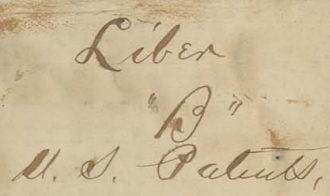 Liber
"B"
U. S. Patents,